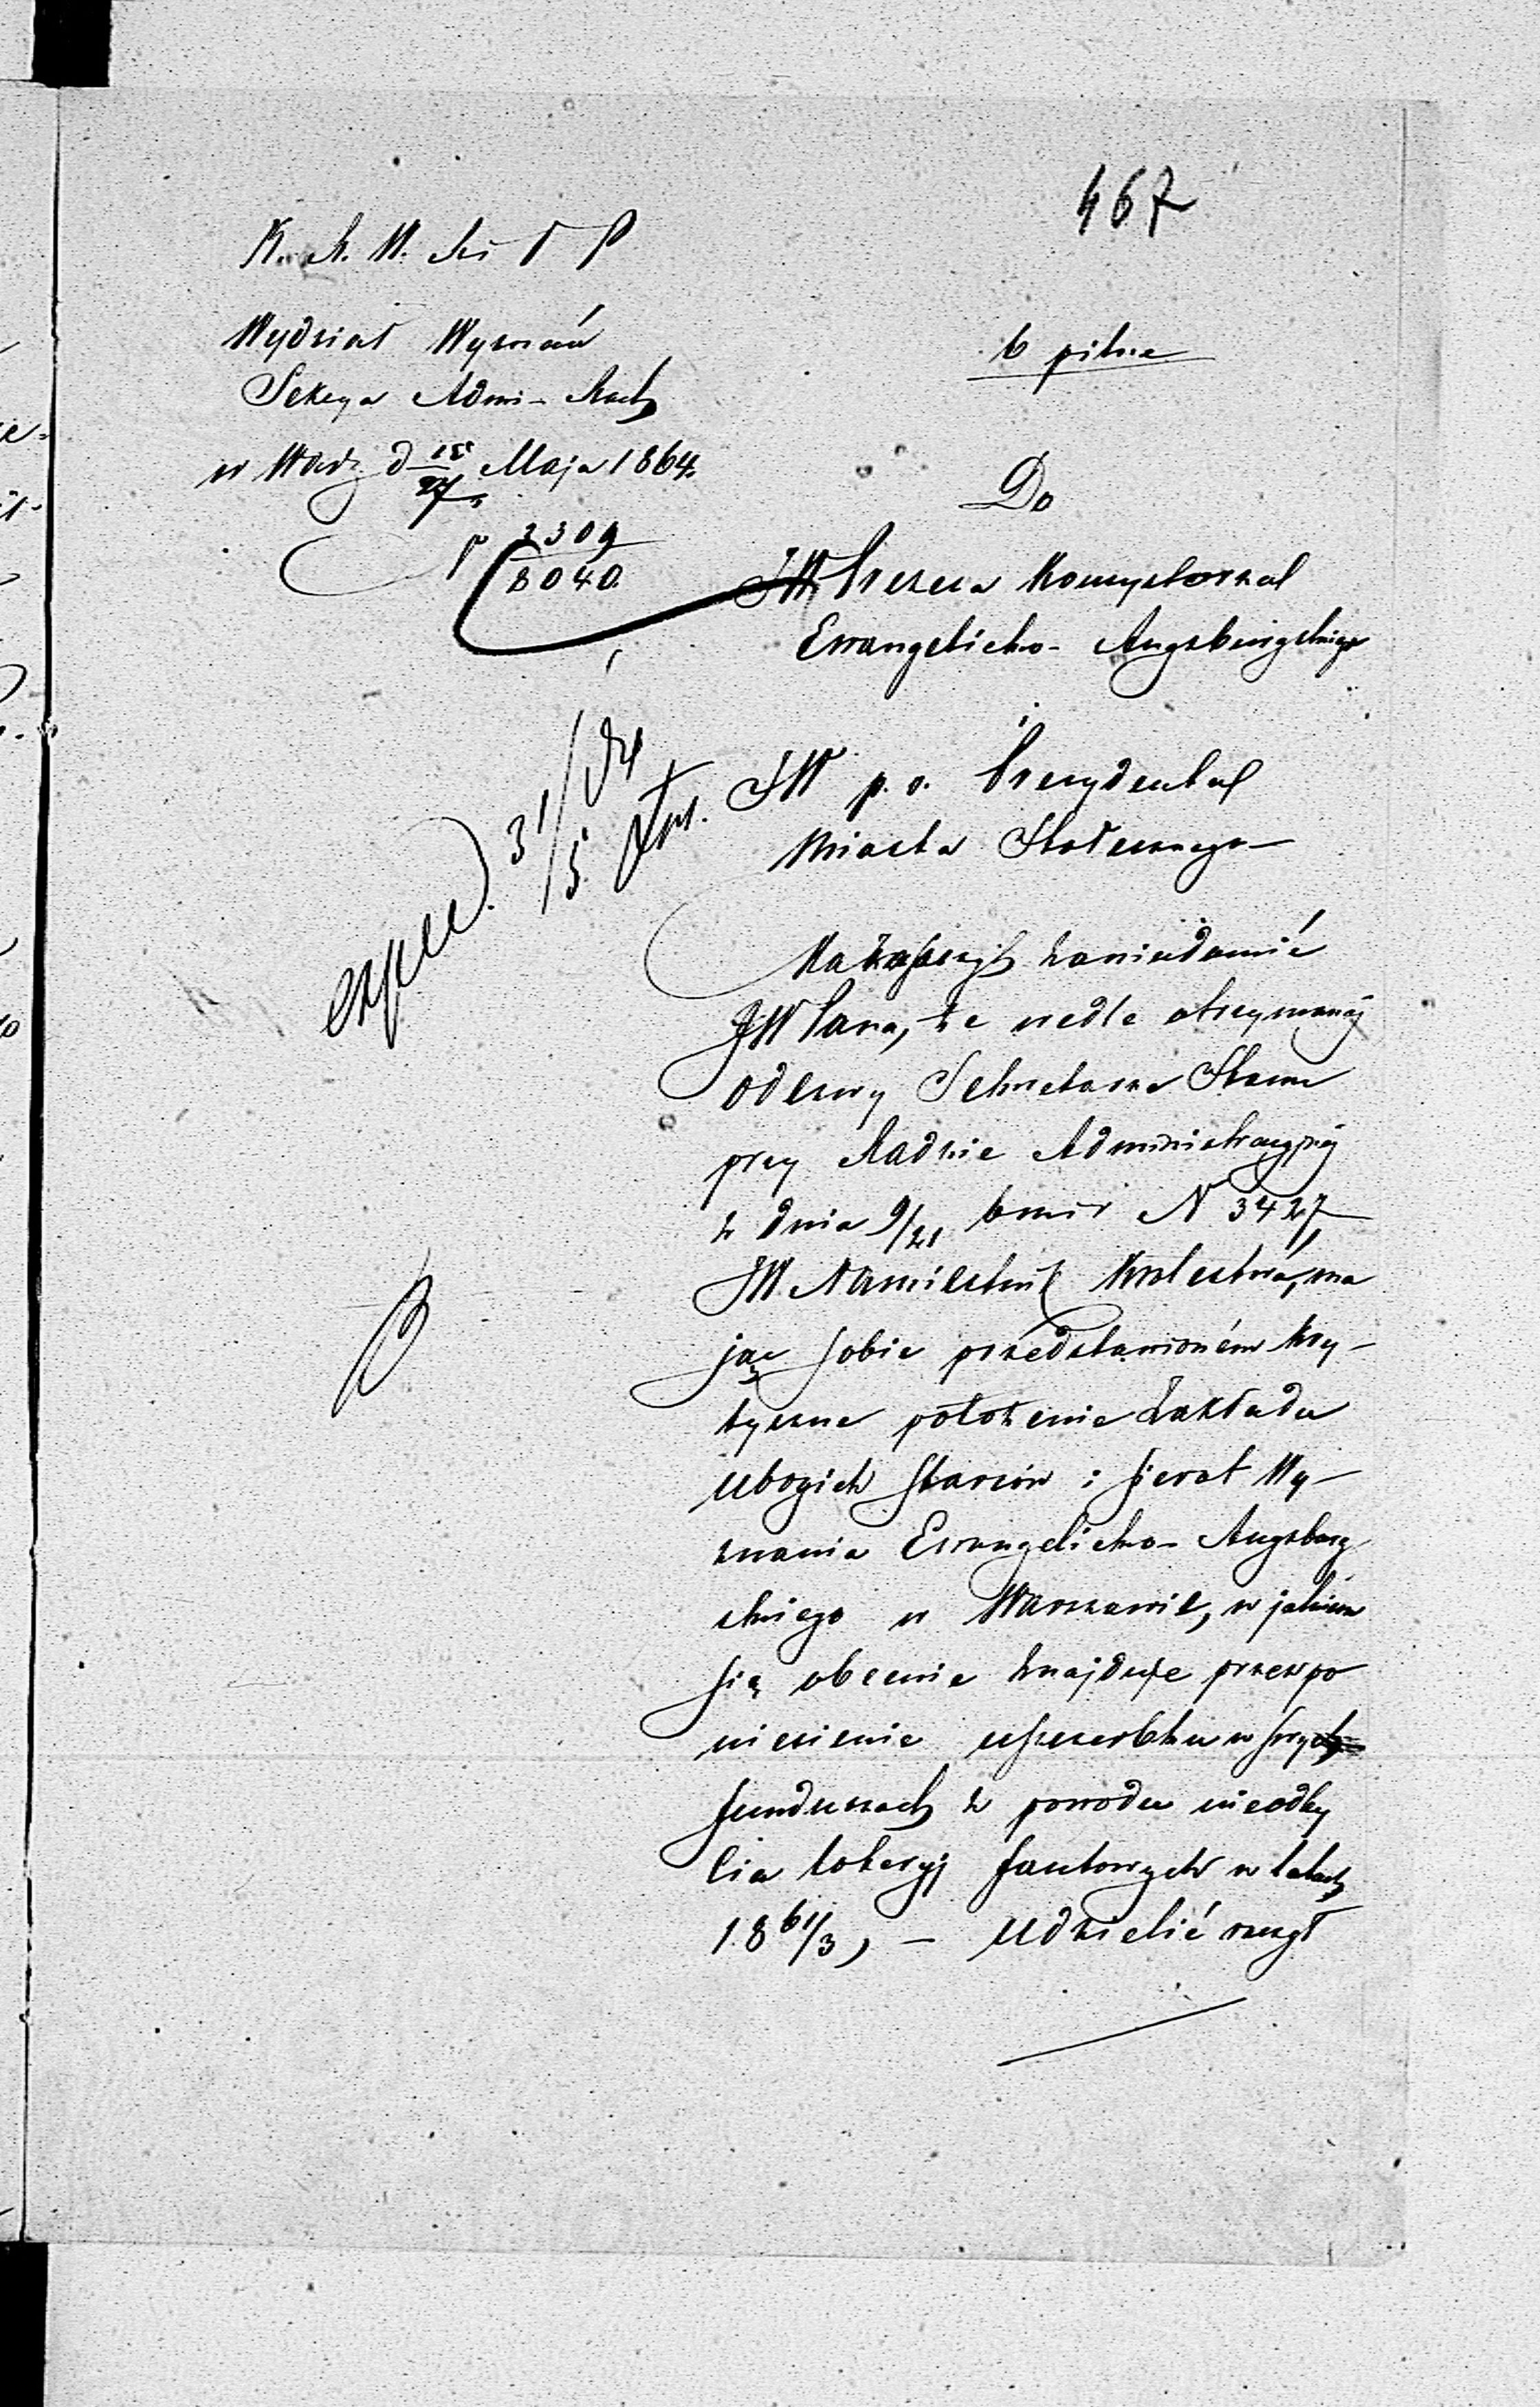 467
K. R. S. W.
Wydział Wyznań
Sekcya Admi- Rach
w Warz d 15/27 Maja 1864.
b pilne
2309
8040.
Do
JW Prezesa Konsystorza
Ewangelicko- Augsburgskiego
JW p. o. Prezydenta
Miasta Stołecznego
exped. 31/5
Ma zaszczyt zawiadomić
JW Pana, że wedle otrzymanéj
odezwy Sekretarza Stanu
przy Radzie Administracyjnéj
z dnia 9/21 bm i r N 3427
JW. Namiestnik Królestwa, ma
jąc sobie przedstawioném kry-
tyczne położenie Zakładu
ubogich starców i sierot Wy-
znania Ewangelicko- Augsburg
skiego w Warszawie, w jakiem
się obecnie znajduje przez po
niesienie uszczerbku w swych
funduszach z powodu nieodby
cia loteryj fantowych w latach
1861/3, – udzielić raczył